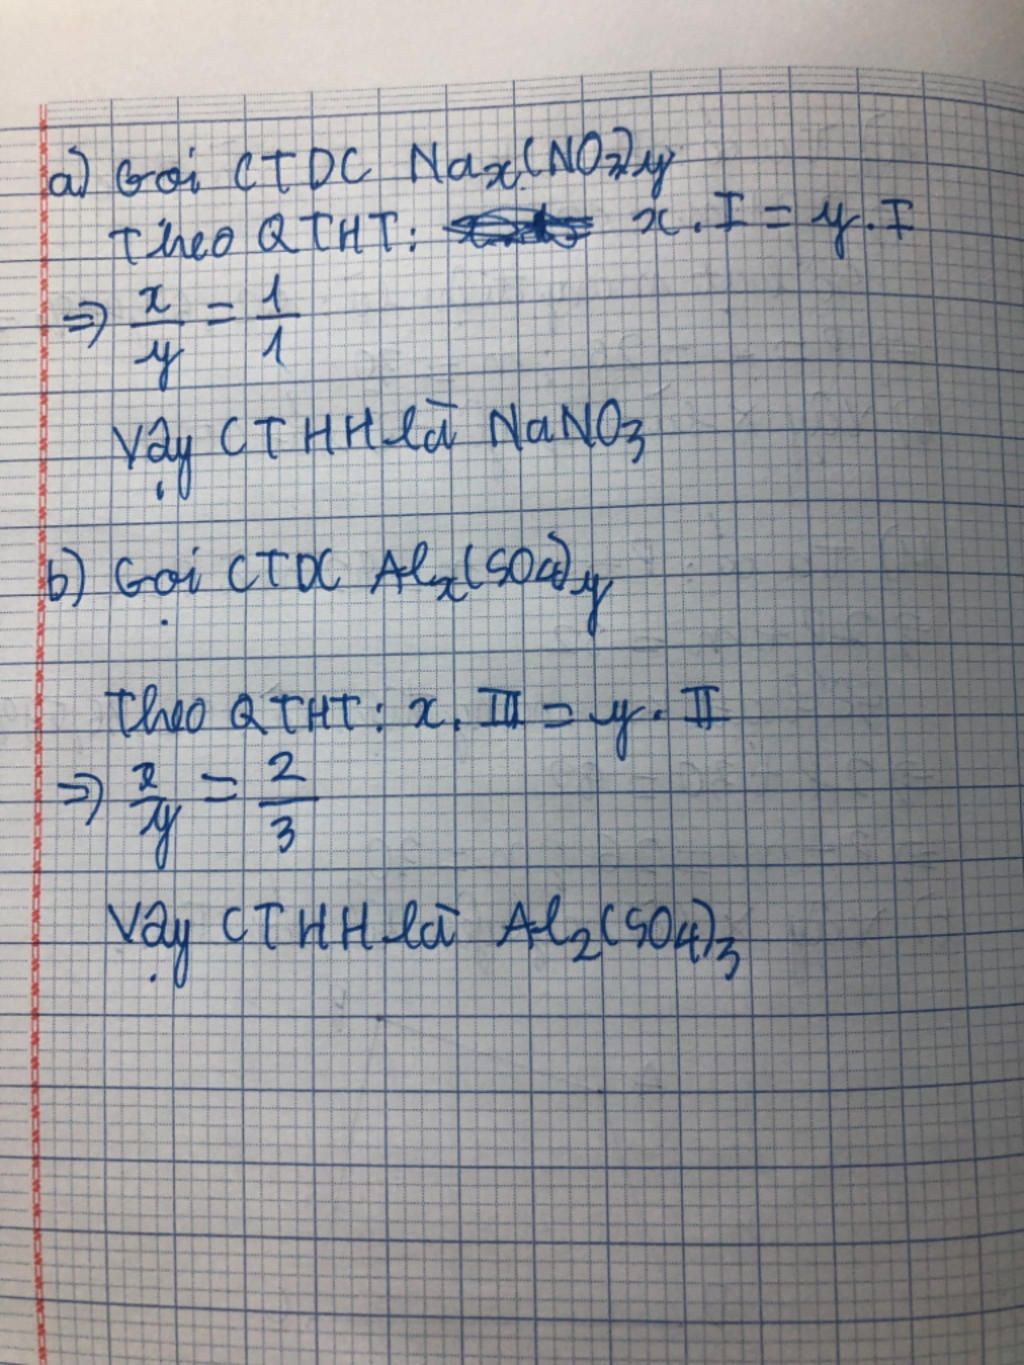 a) Gọi CTDC Naₓ(NO₃)y
Theo QTHT: x. I = y. I
=> x/y = 1/1
Vậy CTHH là NaNO₃
b) Gọi CTDC Alₓ(SO₄)y
Theo QTHT: x. III = y. II
=> x/y = 2/3
Vậy CTHH là Al₂(SO₄)₃